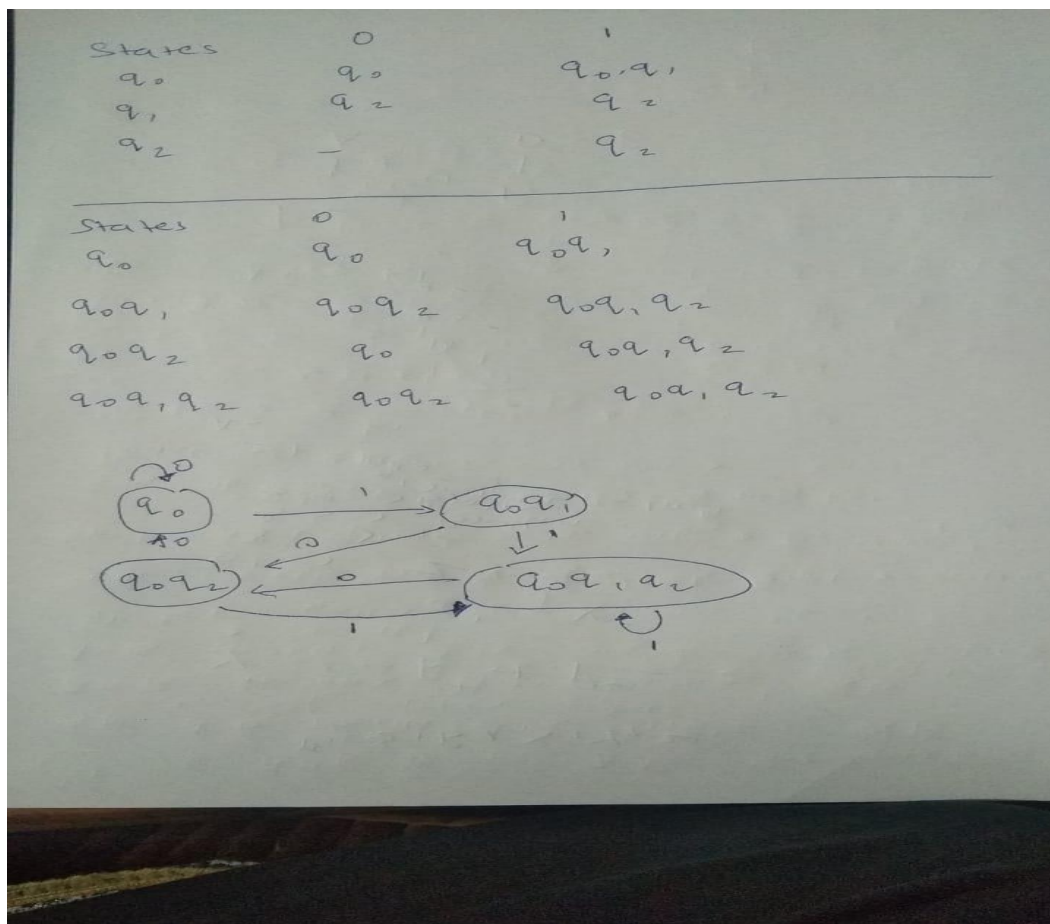 States 0 1
q₀ q₀ q₀.q₁
q₁ q₂ q₂
q₂ – q₂
States 0 1
q₀ q₀ q₀q₁
q₀q₁ q₀q₂ q₀q₁q₂
q₀q₂ q₀ q₀q₁q₂
q₀q₁q₂ q₀q₂ q₀q₁q₂
0
q₀ 1 q₀q₁
0 0 1
q₀q₂ 0 q₀q₁q₂
1 1